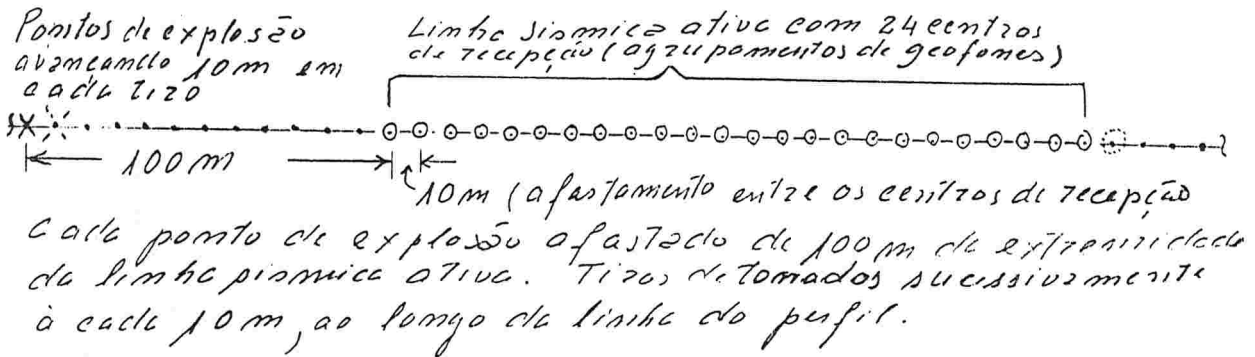 Pontos de explosão
avançando 10m em
cada tiro
Linha sísmica ativa com 24 centros
de recepção (agrupamentos de geofones)
100m
10m (afastamento entre os centros de recepção
Cada ponto de explosão afastado de 100m da extremidade
da linha sísmica ativa. Tiros detonados sucessivamente
à cada 10m, ao longo da linha do perfil.